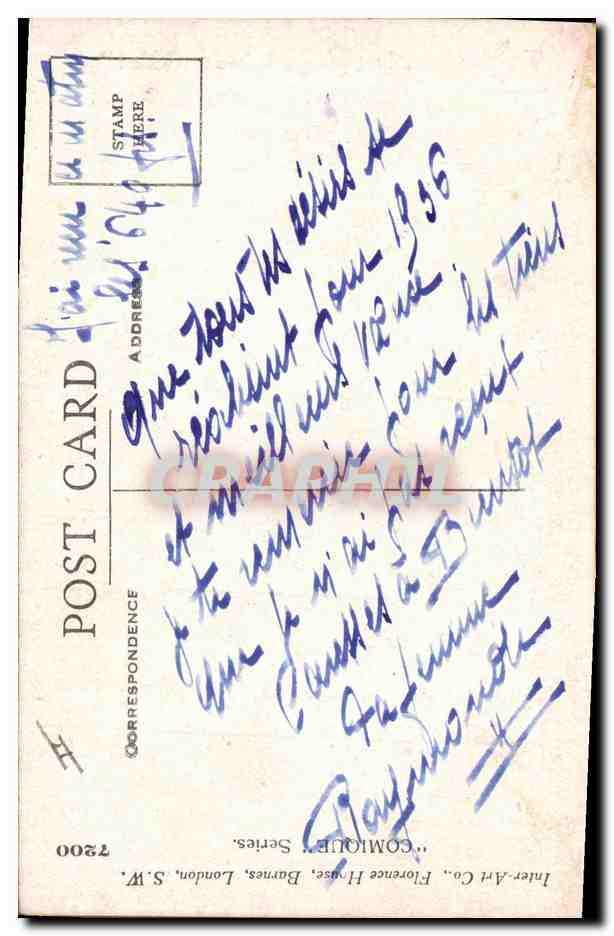 STAMP
HERE
J'ai
les 640 frs
POST CARD
ADDRESS
CORRESPONDENCE
que tous tes désirs se
réalisent pour 1936
et meilleurs vœux
je te renvoie pour les tiens
que je n'ai pas reçus
Caresses à
ta femme
Raymonde
CRAPHOL
7200
"COMIQUE" Series.
Inter-Art Co., Florence House, Barnes, London, S.W.